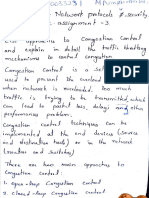 Network protocols & security
assignment - 3
List approaches to Congestion Control
and explain in detail the traffic throttling
mechanisms to control congestion.
Congestion Control is a
used to prevent the overload
when network is overloaded. too much
traffic is trying to be transmitted which
can lead to packet loss, delays and other
performance problems.
Congestion control techniques can be
implemented at the end devices (source
and destination hosts) or in the network
(routers and switches)
There are two main approaches to
Congestion control:
1. open-loop Congestion Control
2. closed-loop Congestion control